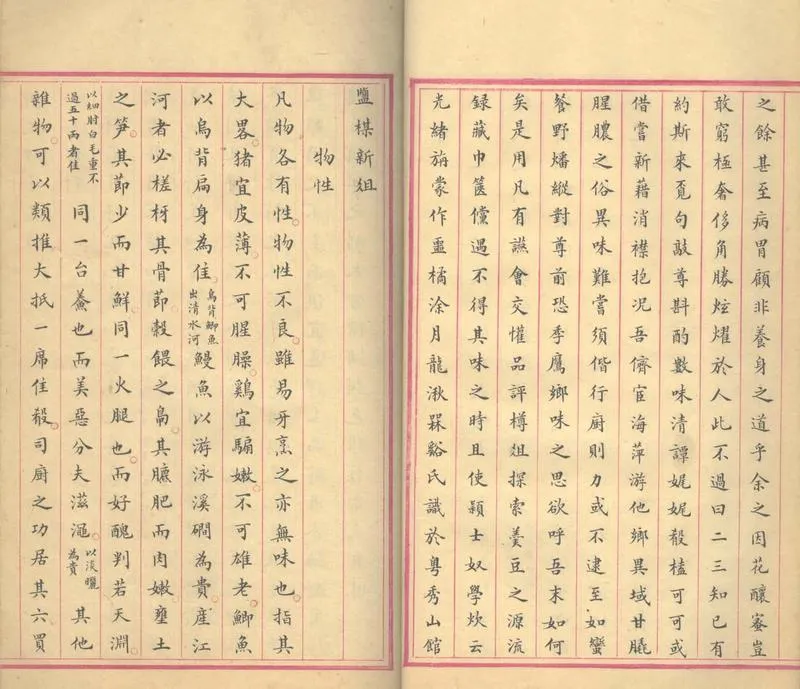 之餘甚至病胃顧非養身之道乎余之因花釀蜜豈
敢窮極奢侈角勝炫燿於人此不過曰二三知己有
約斯來覓句敲尊斟酌數味清譚娓娓殽榼可可或
借嘗新藉消襟抱況吾儕宦海萍游他鄉異域甘毳
腥膿之俗異味難嘗須偕行廚則力或不逮至如蠻
餐野燔縱對尊前恐季鷹鄉味之思欲呼吾末如何
矣是用凡有讌會交懽品評樽俎探索羹豆之源流
録藏巾篋儻遇不得其味之時且使潁士奴學炊云
光緒旃蒙作噩橘涂月龍湫槑谿氏識於粵秀山館
鹽楳新俎
物性
凡物各有性物性不良雖易牙烹之亦無味也指其
大畧猪宜皮薄不可腥臊鷄宜騸嫩不可雄老鯽魚
以烏背扁身為佳烏背鯽魚出清水河鰻魚以游泳溪磵為貴產江
河者必槎枒其骨節糓餵之鳧其臕肥而肉嫩壅土
之笋其節少而甘鮮同一火腿也而好醜判若天淵
以細肘白毛重不過五十兩者佳同一台鮝也而美惡分夫滋澠以淡曬為貴其他
雜物可以類推大抵一席佳殽司廚之功居其六買